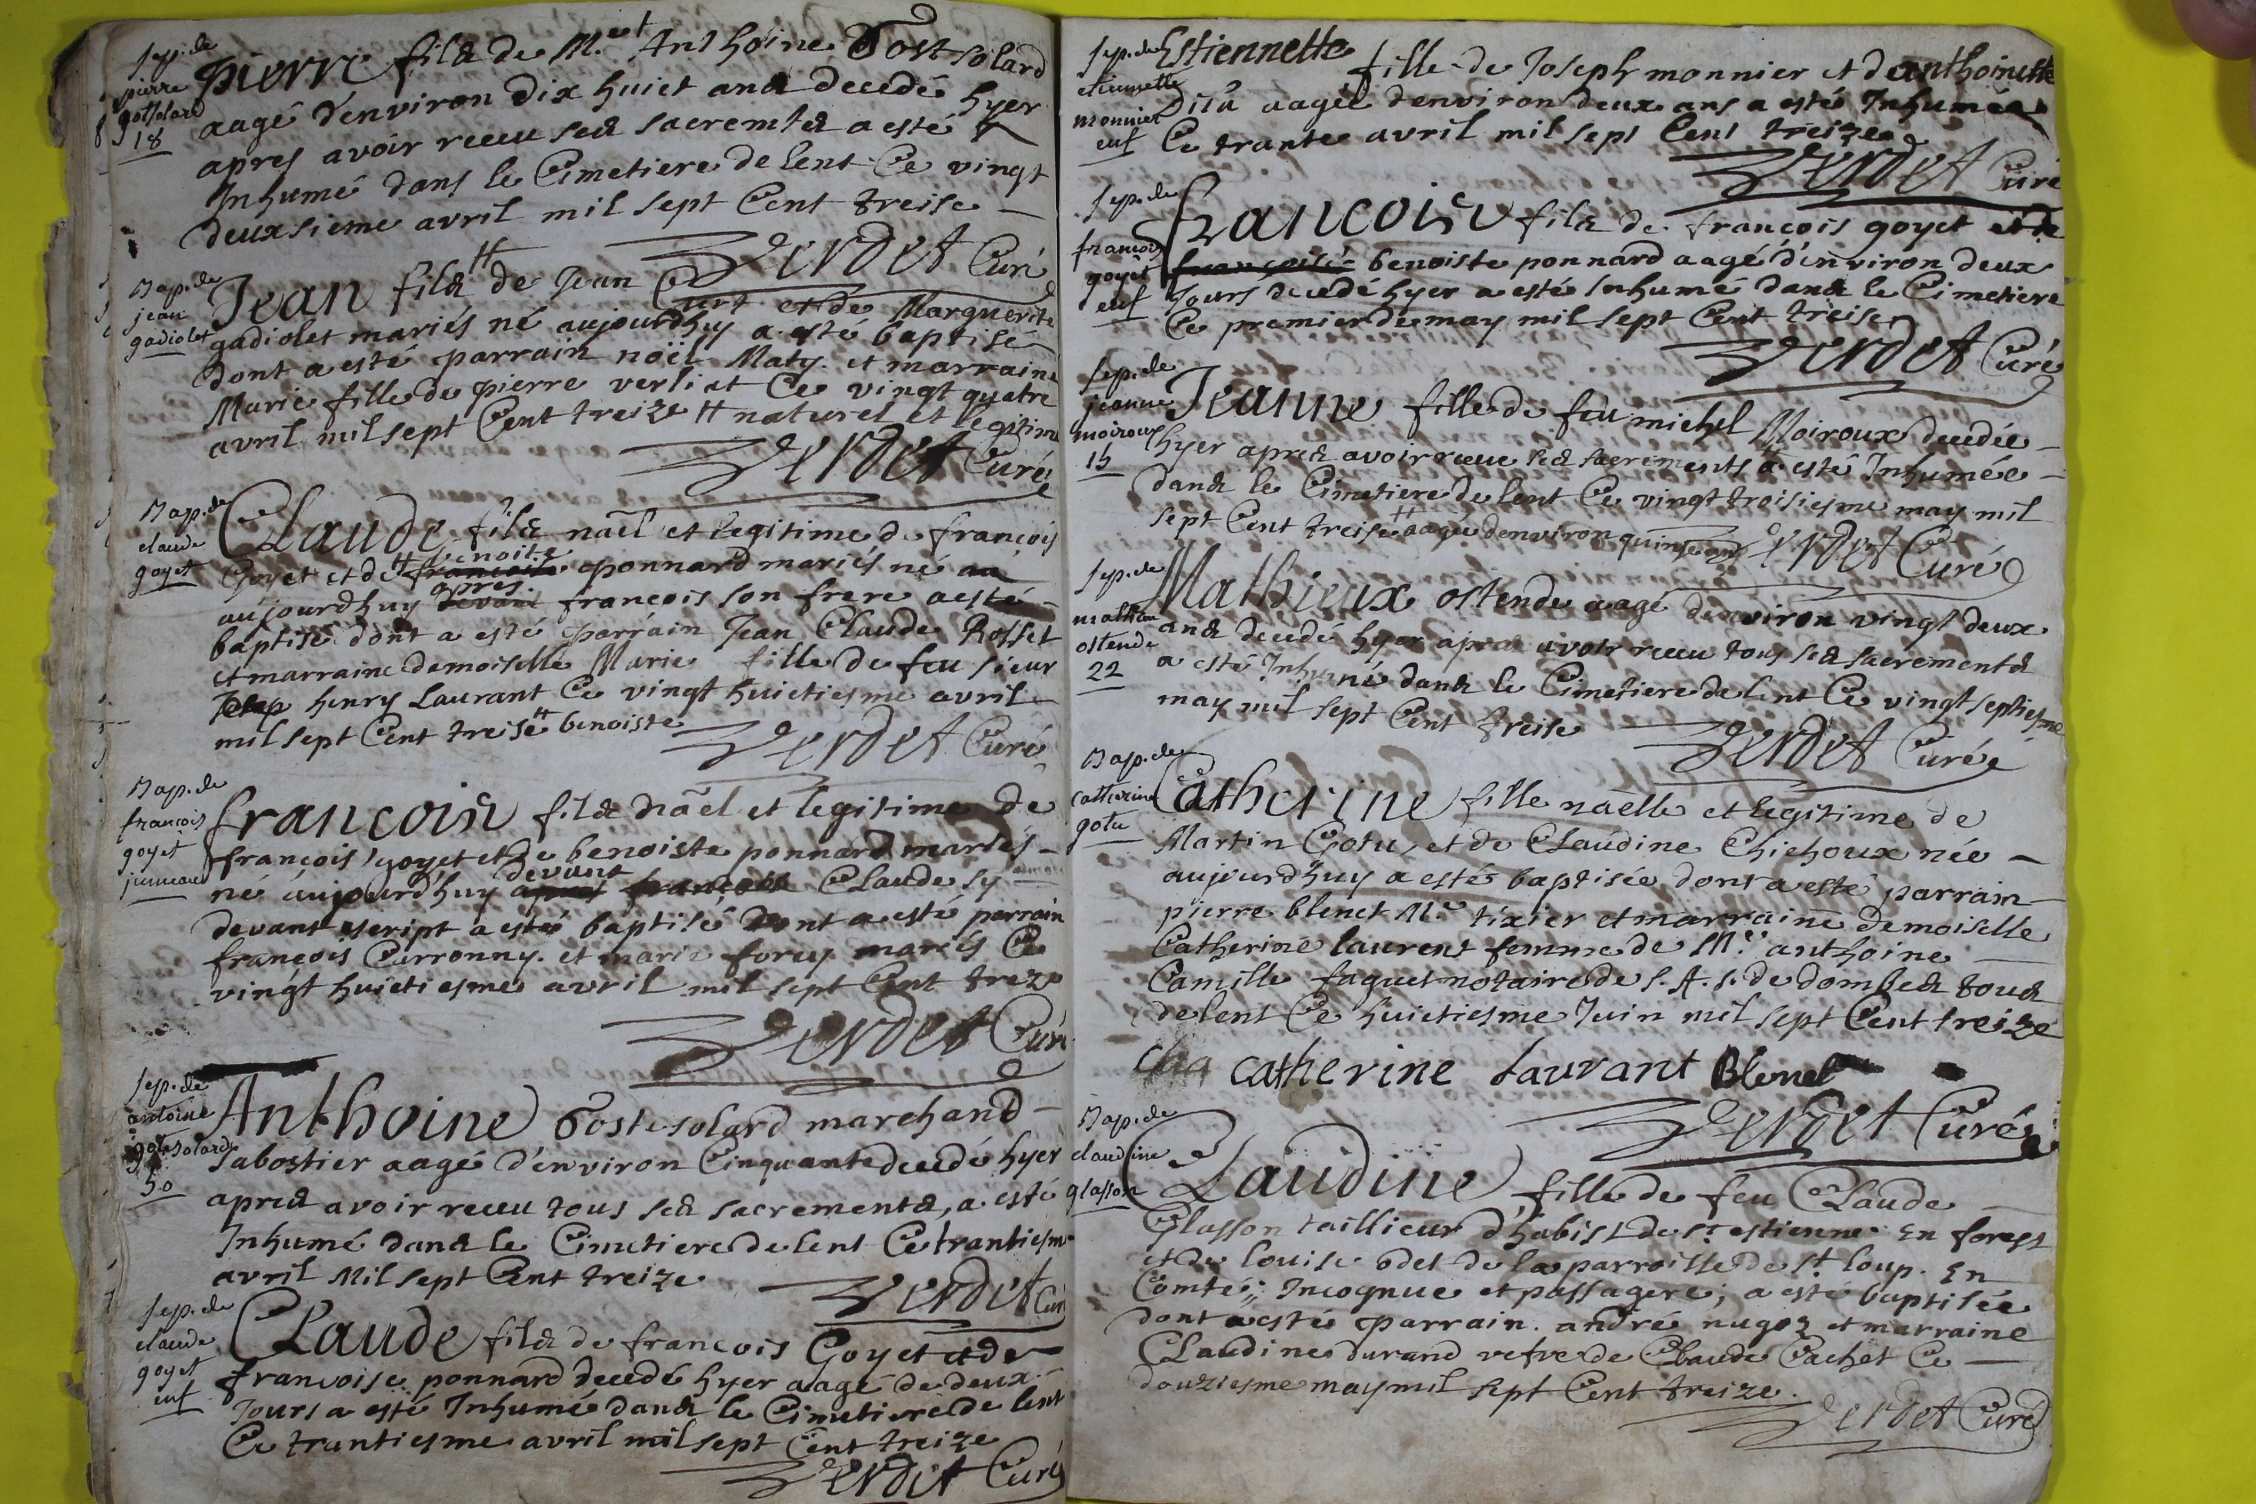 Sep. de
pierre
gotsolard
18
pierre fils de M.e Anthoine Gost solard
aagé d'environ dix huict ans decedé hyer
apres avoir receu ses sacremts a esté
Inhumé dans le Cimetiere de lent Ce vingt
deuxsieme avril mil sept Cent treise
Verdet Curé
Bap. de
jean
gadiolet
Jean fils # de Jean et de Marguerite
gadiolet mariés né aujourdhuy a esté baptisé
dont a esté parrain noël Maty. et marraine
Marie fille de pierre verliat Ce vingt quatre
avril mil sept Cent treize # naturel et legitime
Verdet Curé
Bap. de
claude
goyet
Claude fils nãel et legitime de françois
Goyet et de # benoite ponnard mariés né
aujourdhuy apres françois son frere a esté
baptisé dont a esté parrain Jean Claude Rosset
et marraine demoiselle Marie fille de feu sieur
henry Laurant Ce vingt huictiesme avril
mil sept Cent treise # benoiste
Verdet Curé
Bap. de
françois
goyet
jumeau
françois fils nãel et legitime de
françois goyet et de benoiste ponnard mariés
né aujourd'huy devant Claude sy
devant escript a esté baptisé dont a esté parrain
françois Curronny. et marie forey mariés Ce
vingt huictiesme avril mil sept Cent treze
Verdet Curé
Sep. de
antoine
gotsolard
50
Anthoine Gostesolard marchand
sabostier aagé d'environ Cinquante decedé hyer
apres avoir receu tous ses sacrements, a esté
Inhumé dans le Cimetiere de lent Ce trantiesme
avril Mil sept Cent treize
Verdet Curé
Sep. de
claude
goyet
enf
Claude fils de françois Goyet et de
françoise ponnard decedé hyer aagé de deux
Jours a esté Inhumé dans le Cimetiere de lent
Ce trantiesme avril mil sept Cent treize
Verdet Curé
Sep. de
etiennette
monnier
enf
Estiennette fille de Joseph monnier et d anthoinette
aagée d'environ deux ans a esté Inhumée
Ce trante avril mil sept Cent treize
Verdet Curé
Sep. de
françois
goyet
enf
françois fils de françois goyet et de
françoise benoiste ponnard aagé d'environ deux
Jours decedé hyer a esté Inhumé dans le Cimetiere
Ce premier de may mil sept Cent treise
Verdet Curé
Sep. de
jeanne
moiroux
15
Jeanne fille de feu michel Moiroux decedée
hyer apres avoir receu ses sacrements # a esté Inhumée
dans le Cimetiere de lent Ce vingt troisiesme may mil
sept Cent treise # aagée d'environ quinse ans Verdet Curé
Sep. de
mathieu
ostende
22
Mathieux ostende aagé d'environ vingt deux
ans decedé hyer apres avoir receu tous ses sacrements
a esté Inhumé dans le Cimetiere de lent Ce vingt septiesme
may mil sept Cent treise
Verdet Curé
Bap. de
catherine
gotu
Catherine fille nãelle et legitime de
Martin Gotu, et de Claudine Chichoux née
aujourd'huy a estée baptisée dont a esté parrain
pierre blenet M.e tixier et marraine demoiselle
Catherine laurent femme de M.e anthoine
Camille faguet notaire de S. A. S. de dombes tous
de lent Ce huictiesme Juin mil sept Cent treize
catherine Laurant Blenet
Verdet Curé
Bap. de
claudine
glasson
Claudine fille de feu Claude
Glasson taillieur d'habist de St estienne En forest
et de louise odet de la parroisse de St loup. En
Comté; Incognue et passagere; a esté baptisée
dont a esté parrain. andré nugoz et marraine
Claudine durand vefve de Claude Cachet Ce
douziesme may mil sept Cent treize.
Verdet Curé